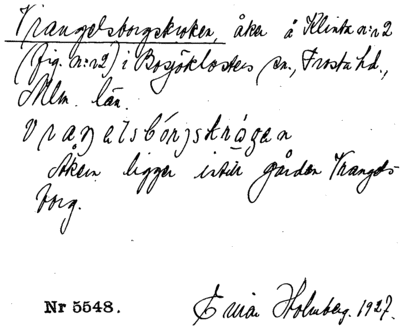 Vrangelsborgskroken, åker å Klinta n:r 2
(fig. n:r 2) i Bosjöklosters sn., Frosta hd.,
Mlm. län.
Åkern ligger intill gården Vrangels-
borg.
Nr 5548. Holmberg. 1927.